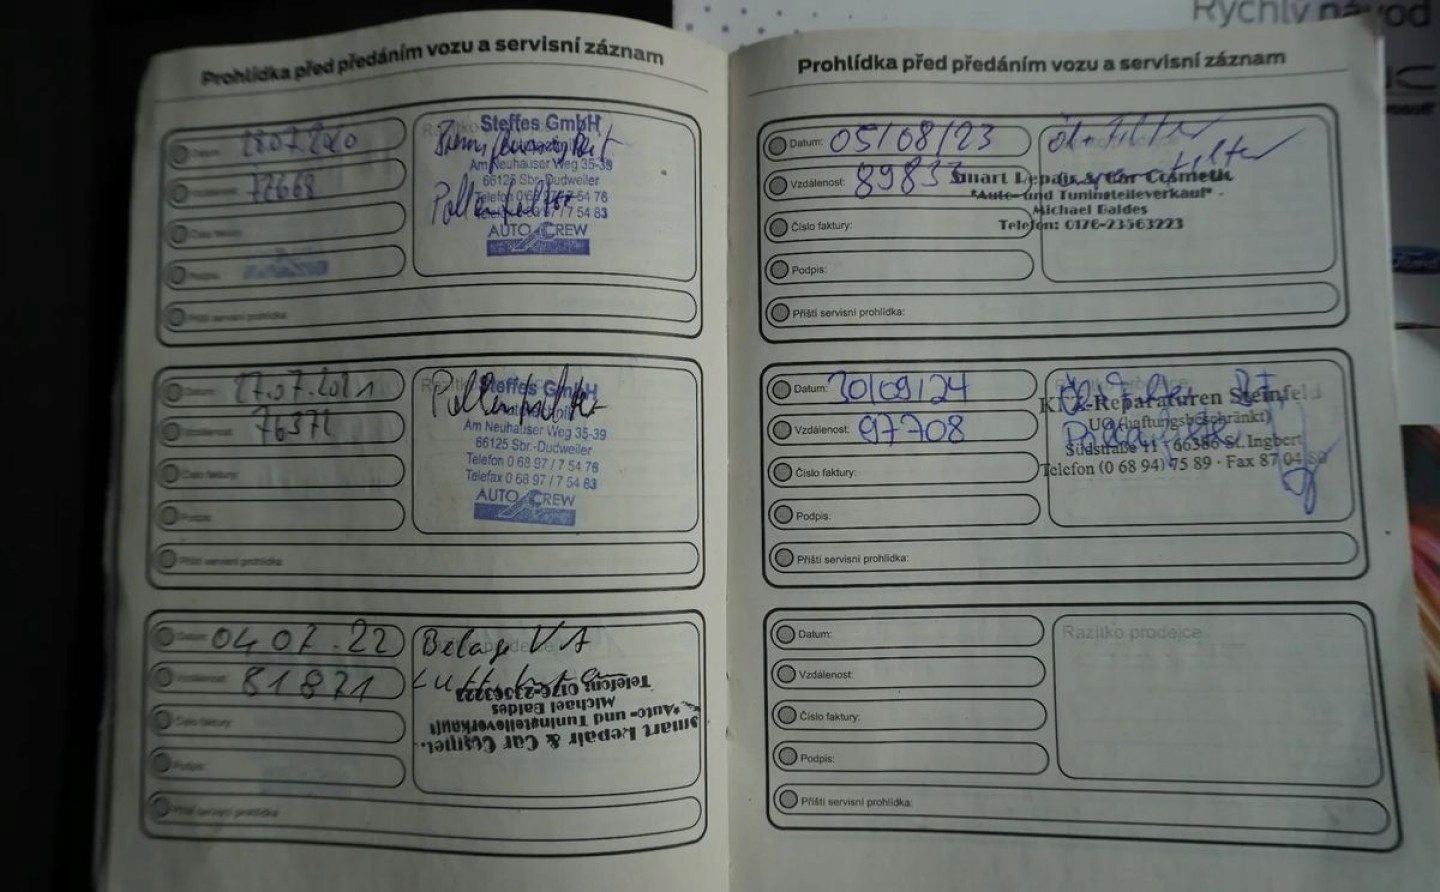 Rychlý návod
Prohlídka před předáním vozu a servisní záznam
Datum: 28.07.2020
Vzdálenost: 72668
Číslo faktury:
Podpis:
Příští servisní prohlídka:
Steffes GmbH
Am Neuhauser Weg 35-39
66125 Sbr.-Dudweiler
Telefon 0 68 97 / 7 54 76
Telefax 0 68 97 / 7 54 83
Pollenfilter
AUTO CREW
Datum: 27.07.2021
Vzdálenost: 76372
Číslo faktury:
Podpis:
Příští servisní prohlídka:
Pollenfilter
Steffes GmbH
Am Neuhauser Weg 35-39
66125 Sbr.-Dudweiler
Telefon 0 68 97 / 7 54 76
Telefax 0 68 97 / 7 54 83
AUTO CREW
Datum: 04 07.22
Vzdálenost: 81871
Číslo faktury:
Podpis:
Příští servisní prohlídka:
Beläge VA
Smart Repair & Car Cosmet.
"Auto- und Tuningteileverkauf"
Michael Baldes
Telefon: 0176-23563223
Prohlídka před předáním vozu a servisní záznam
Datum: 05/08/23
Vzdálenost: 89833
Číslo faktury:
Podpis:
Příští servisní prohlídka:
Öl + Filter
Smart Repair & Car Cosmeth
"Auto- und Tuningteileverkauf"
Michael Baldes
Telefon: 0176-23563223
Datum: 30/09/24
Vzdálenost: 97708
Číslo faktury:
Podpis:
Příští servisní prohlídka:
KFZ-Reparaturen Steinfeld
UG (haftungsbeschränkt)
Südstraße 11 · 66386 St. Ingbert
Telefon (0 68 94) 75 89 · Fax 87 04 80
Datum:
Vzdálenost:
Číslo faktury:
Podpis:
Příští servisní prohlídka:
Razítko prodejce